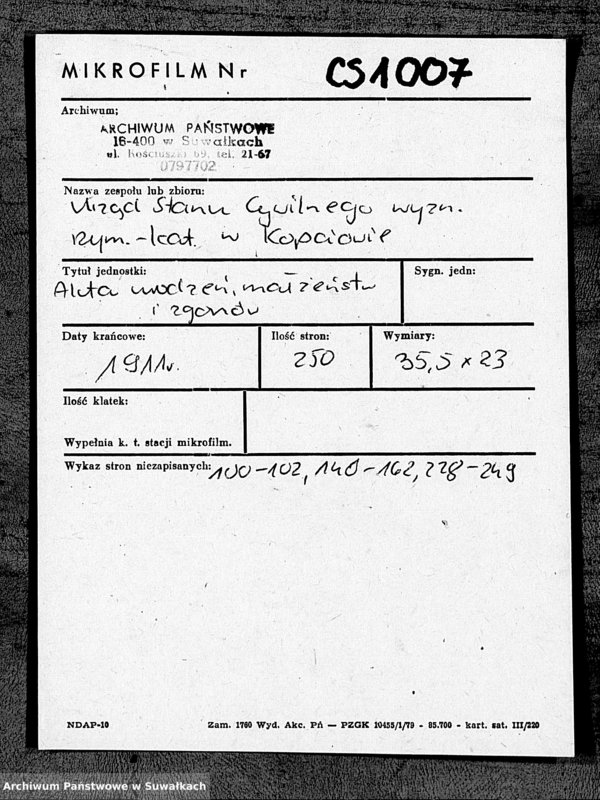 MIKROFILM Nr CS1007
Archiwum;
ARCHIWUM PAŃSTWOWE
16-400 w Suwałkach
ul. Kościuszki 69, tel. 21-67
0797702
Nazwa zespołu lub zbioru:
Urząd Stanu Cywilnego wyzn.
rzym.-kat. w Kopciowie
Tytuł jednostki:
Sygn. jedn:
Akta urodzeń, małżeństw
i zgonów
Daty krańcowe:
Ilość stron:
Wymiary:
1911r.
250
35,5 x 23
Ilość klatek:
Wypełnia k. t. stacji mikrofilm.
Wykaz stron niezapisanych: 100-102, 140-162, 228-249
NDAP-10
Zam. 1760 Wyd. Akc. Pń — PZGK 10455/1/79 - 85.700 - kart. sat. III/220
Archiwum Państwowe w Suwałkach